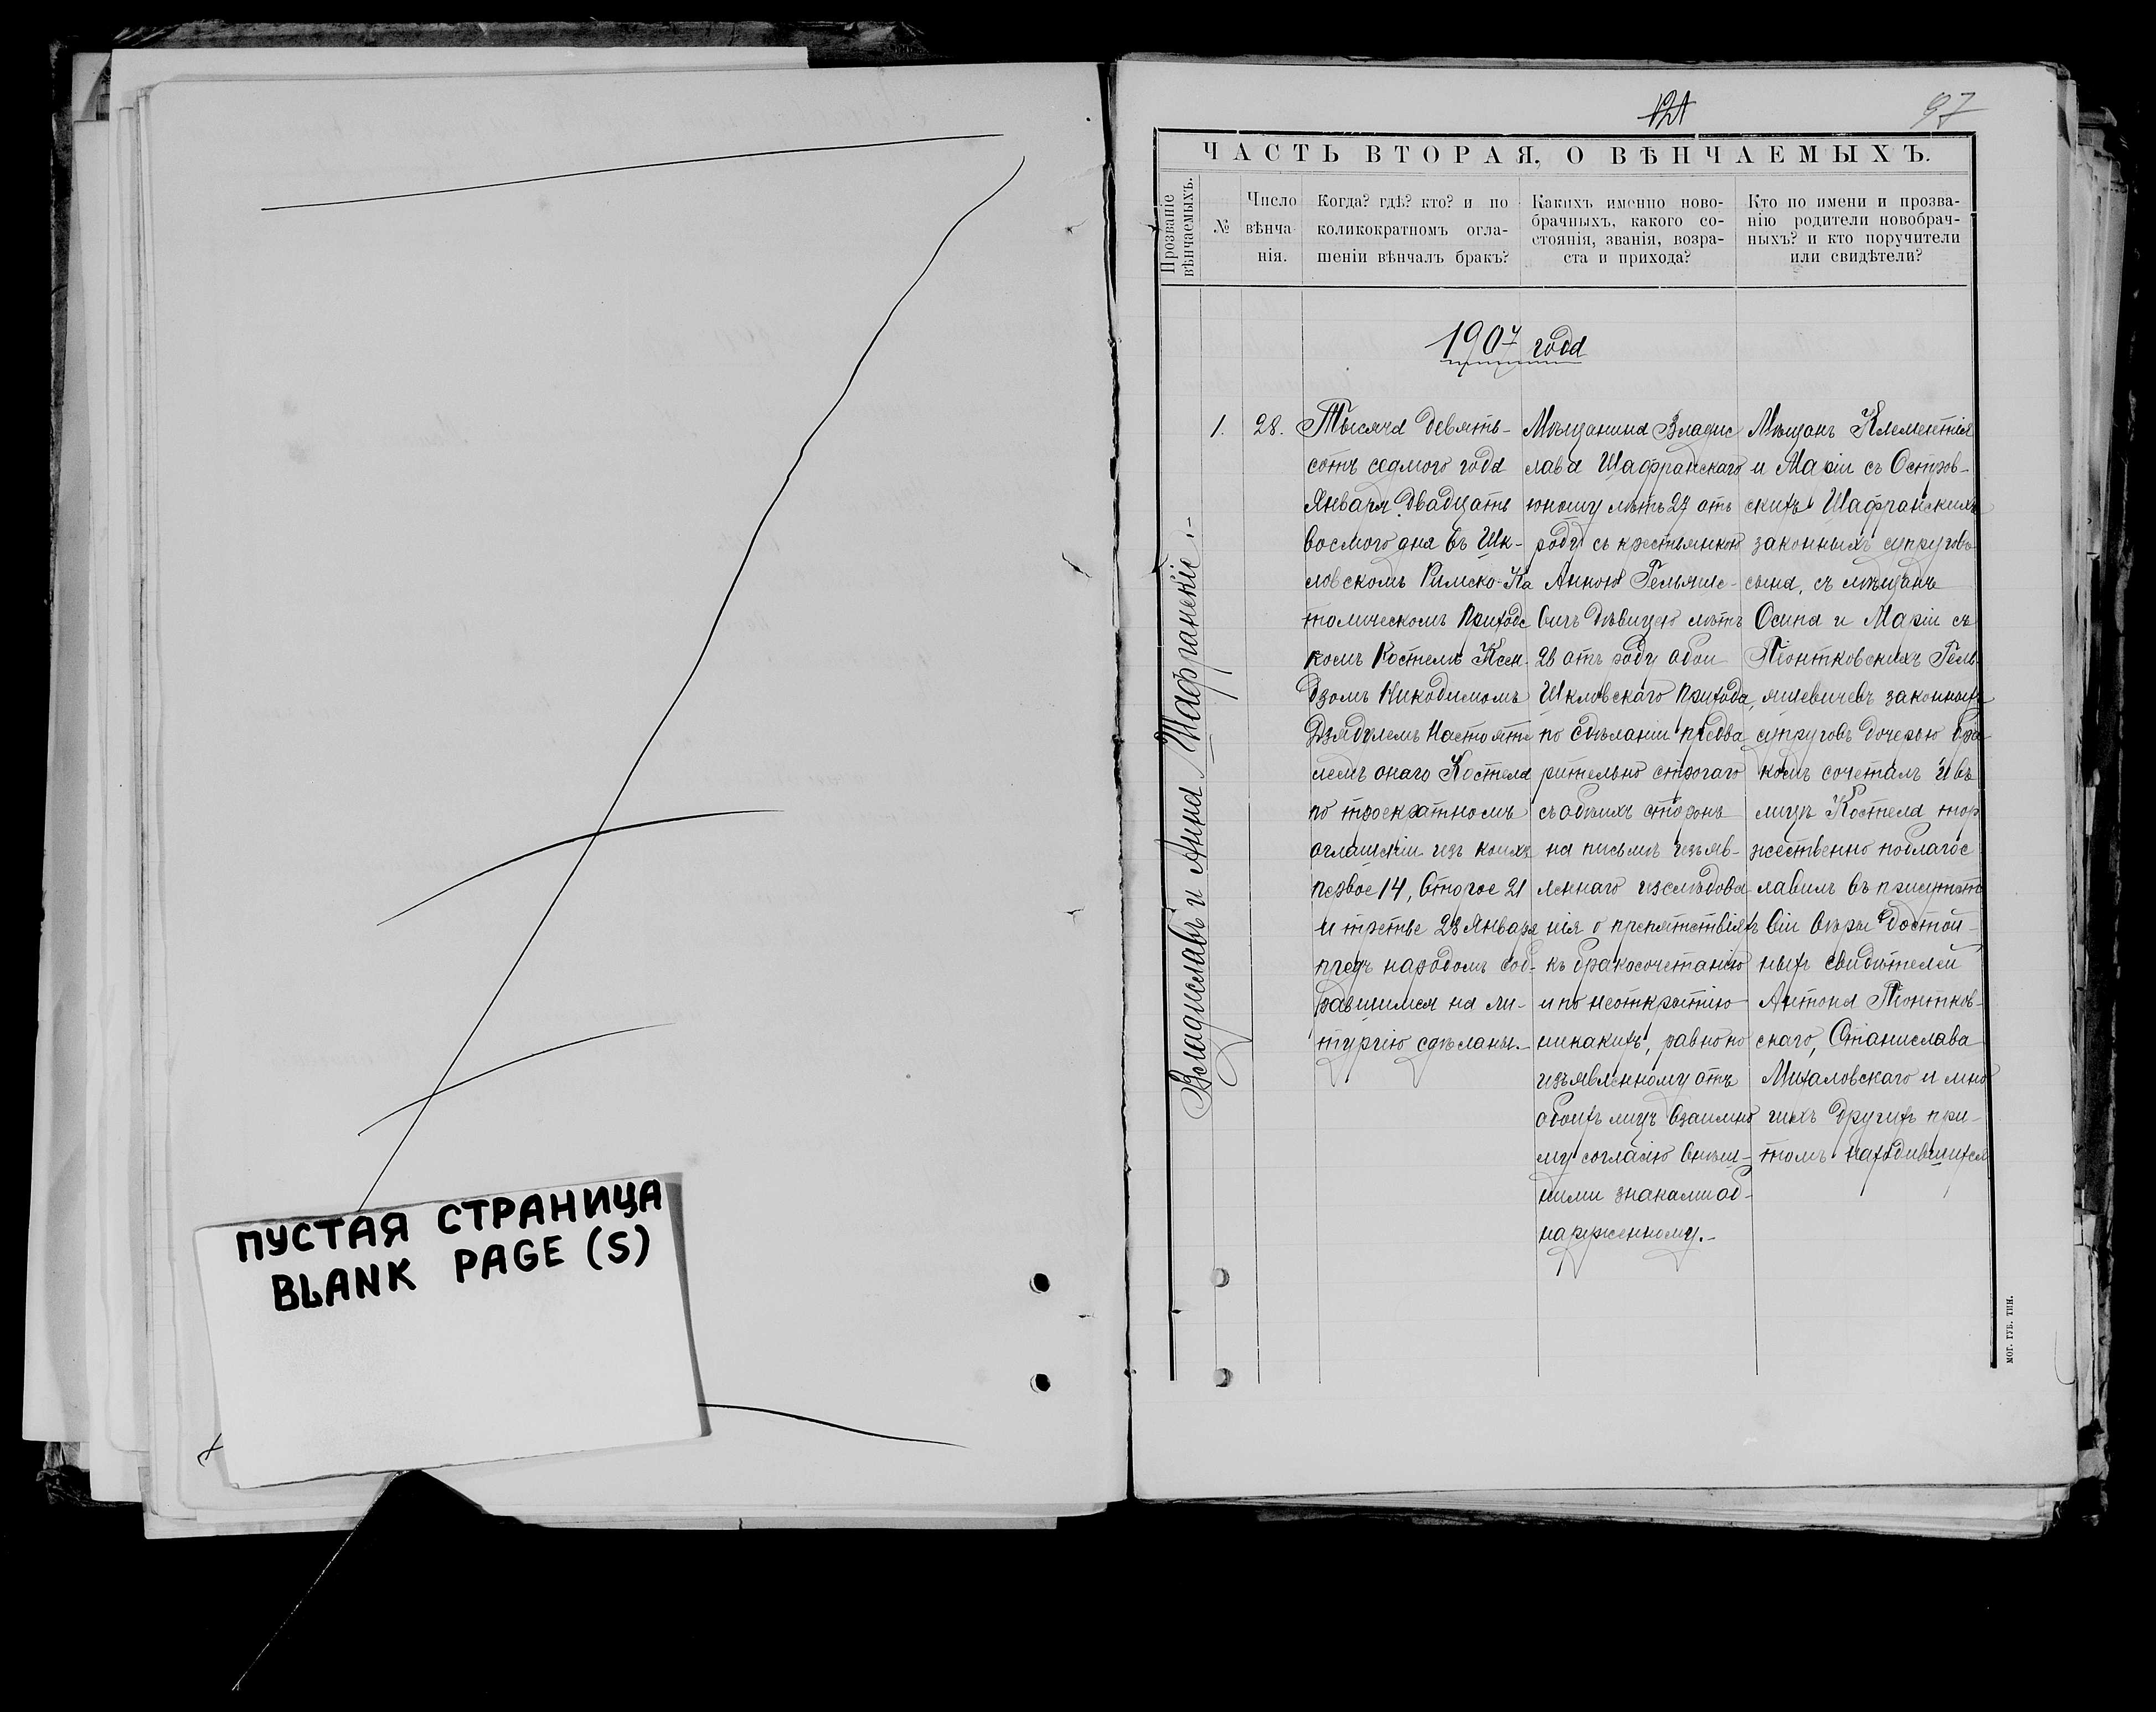 ПУСТАЯ СТРАНИЦА
BLANK PAGE (S)
121
97
ЧАСТЬ ВТОРАЯ, О ВѢНЧАЕМЫХЪ.
Прозваніе
вѣнчаемыхъ.
№
Число
вѣнча-
нія.
Когда? гдѣ? кто? и по
коликократномъ огла-
шеніи вѣнчалъ бракъ?
Какихъ именно ново-
брачныхъ, какого со-
стоянія, званія, возра-
ста и прихода?
Кто по имени и прозва-
нію родители новобрач-
ныхъ? и кто поручители
или свидѣтели?
1907 года
Владиславъ и Анна Шафранскіе.-
1.
28.
Тысяча девять-
сотъ седмого года
Января двадцать
восмого дня въ Шк-
ловскомъ Римско-Ка
толическомъ Приходс
комъ Костелѣ Ксен-
дзомъ Никодимомъ
Дзядулемъ Настояте
лемъ онаго Костела
по троекратномъ
оглашеніи изъ коихъ
первое 14, второе 21
и третье 28 Января
предъ народомъ соб-
равшимся на ли-
тургію сдѣланы.-
Мѣщанина Владис
лава Шафранскаго
юношу лѣтъ 27 отъ
роду съ крестьянкою
Анною Гельяше-
вичъ дѣвицею лѣтъ
28 отъ роду обои
Шкловскаго прихода,
по сдѣланіи предва
рительно строгаго
съ обѣихъ сторонъ
на письмѣ изъяв-
леннаго изслѣдова-
нія о препятствіяхъ
къ бракосочетанію
и по неоткрытію
никакихъ, равно по
изъявленному отъ
обоихъ лицъ взаимно
му согласію внѣш-
ними знаками об-
наруженному.-
Мѣщанъ Клементія
и Маріи съ Остров-
скихъ Шафранскихъ
законныхъ супруговъ
сына, съ мѣщанъ
Осипа и Маріи съ
Піонтковскихъ Гель-
яшевичевъ законныхъ
супруговъ дочерью бра
комъ сочеталъ и въ
лицѣ Костела тор
жественно поблагос
лавилъ въ присутст
віи вѣры достой-
ныхъ свидѣтелей
Антона Піонтков-
скаго, Станислава
Михаловскаго и мно
гихъ другихъ при-
томъ находившихся
МОГ. ГУБ. ТИП.